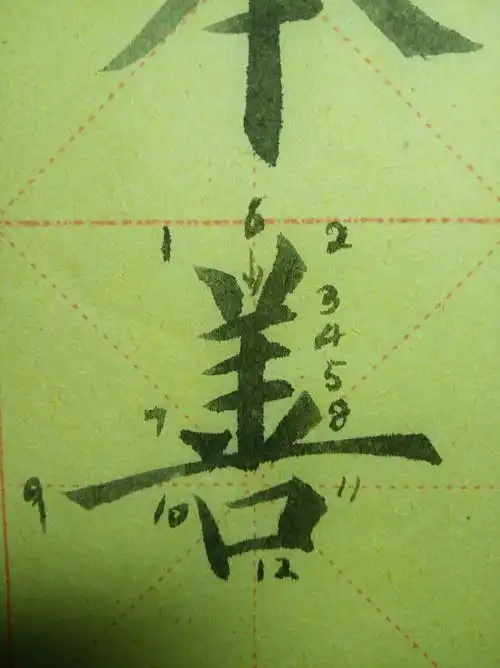 本
善
6
1 2
3
4
5
7 8
9 10 11
12